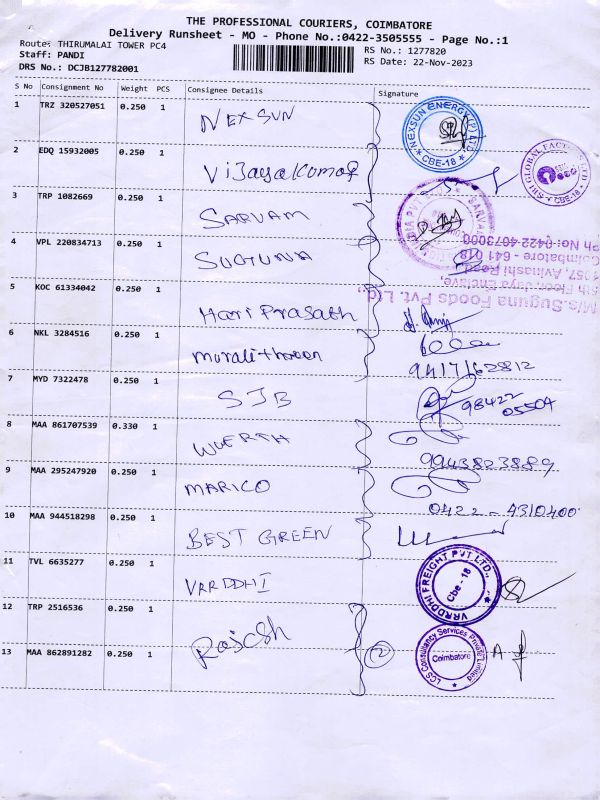 THE PROFESSIONAL COURIERS, COIMBATORE
Delivery Runsheet - MO - Phone No.:0422-3505555 - Page No.:1
Route: THIRUMALAI TOWER PC4
RS No.: 1277820
Staff: PANDI
RS Date: 22-Nov-2023
DRS No.: DCJB127782001
S No Consignment No Weight PCS Consignee Details Signature
1 TRZ 320527051 0.250 1 NEXSUN
NEXSUN ENERGY (P) LTD
CBE-18
2 EDQ 15932005 0.250 1 Vijayakumar
SBI GLOBAL FACTORS LTD
CBE-18
3 TRP 1082669 0.250 1 SARVAM
4 VPL 220834713 0.250 1 SUGUNA
M/s.Suguna Foods Pvt. Ltd.,
5th Floor, Jaya Enclave,
1057, Avinashi Road,
Coimbatore - 641 018
Ph No: 0422-4073000
5 KOC 61334042 0.250 1 Hari Prasath
6 NKL 3284516 0.250 1 muralitharan
7 MYD 7322478 0.250 1 SJB
98422
05504
8 MAA 861707539 0.330 1 WUERTH
9943823889
9 MAA 295247920 0.250 1 MARICO
0422 - 4310400
10 MAA 944518298 0.250 1 BEST GREEN
11 TVL 6635277 0.250 1 VRRDDHI
VRRDDHI FREIGHT PVT LTD.,
Cbe - 18
12 TRP 2516536 0.250 1 Rajesh
13 MAA 862891282 0.250 1 2
LCS Consultancy Services Private Limited
Coimbatore